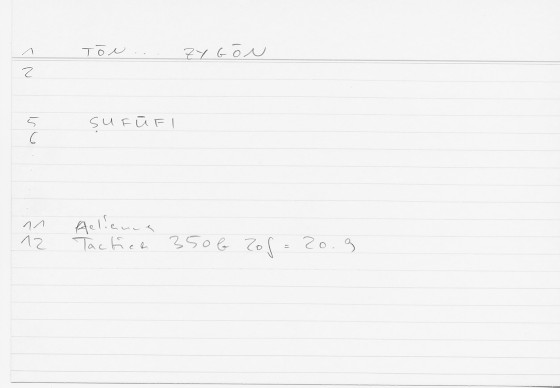 1 TŌN ... ZYGŌN
2
5 ṢUFŪFI
6
11 Aelianus
12 Tactica 350G 20f = 20.9